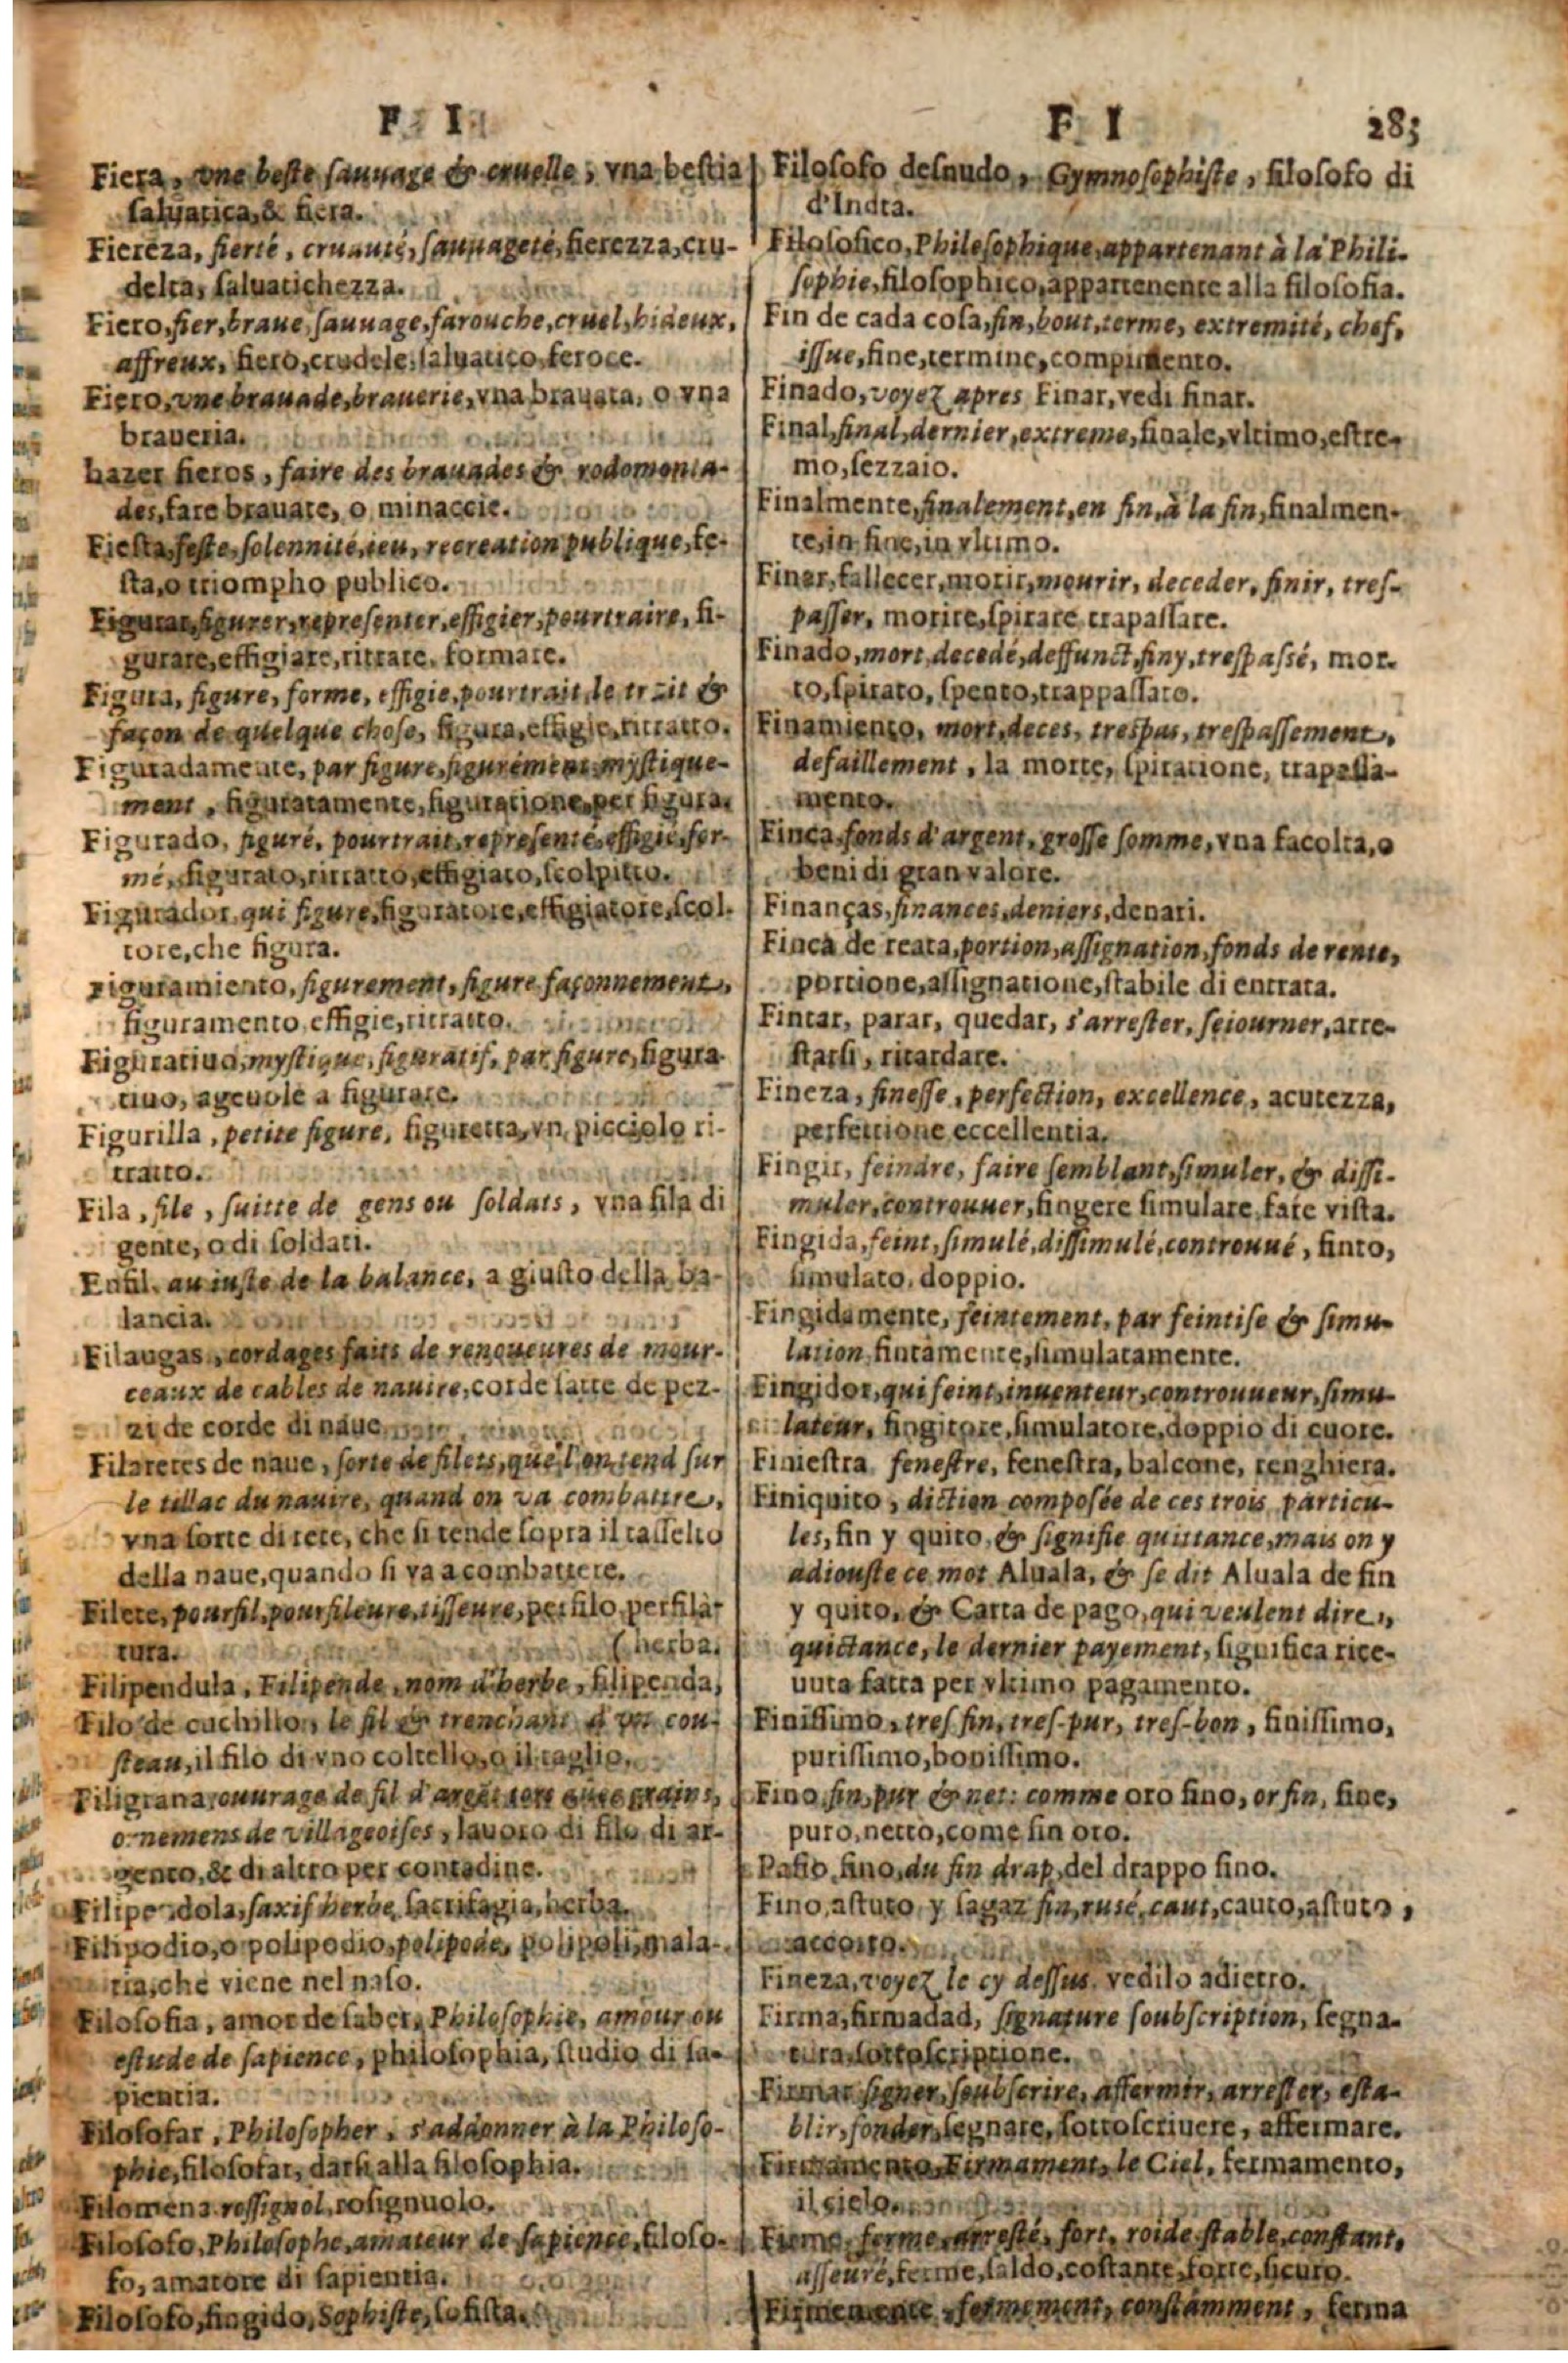 F I
Fiera, vne beste sauuage & cruelle, vna bestia
saluatica, & fiera.
Fiereza, fierté, cruauté, sauuageté, fierezza, cru-
delta, saluatichezza.
Fiero, fier, braue, sauuage, farouche, cruel, hideux,
affreux, fiero, crudele, saluatico, feroce.
Fiero, vne brauade, brauerie, vna brauata, o vna
braueria.
hazer fieros, faire des brauades & rodomonta-
des, fare brauate, o minaccie.
Fiesta, feste, solennité, ieu, recreation publique, fe-
sta, o triompho publico.
Figurar, figurer, representer, effigier, pourtraire, fi-
gurare, effigiare, ritrare, formare.
Figura, figure, forme, effigie, pourtrait, le trait &
façon de quelque chose, figura, effigie, ritratto.
Figuradamente, par figure, figurément, mystique-
ment, figuratamente, figuratione, per figura.
Figurado, figuré, pourtrait, representé, effigié, for-
mé, figurato, ritratto, effigiato, scolpitto.
Figurador, qui figure, figuratore, effigiatore, scol-
tore, che figura.
Figuramiento, figurement, figure façonnement,
figuramento, effigie, ritratto.
Figuratiuo, mystique, figuratif, par figure, figura-
tiuo, ageuole a figurare.
Figurilla, petite figure, figuretta, vn picciolo ri-
tratto.
Fila, file, suitte de gens ou soldats, vna fila di
gente, o di soldati.
Enfil, au iuste de la balance, a giusto della ba-
lancia.
Filaugas, cordages faits de renoueures de mour-
ceaux de cables de nauire, corde fatte de pez-
zi de corde di naue.
Filaretes de naue, sorte de filets, que l'on tend sur
le tillac du nauire, quand on va combattre,
vna sorte di rete, che si tende sopra il tasselto
della naue, quando si va a combattere.
Filete, pourfil, pourfileure, tisseure, perfilo, perfila-
tura. (herba.
Filipendula, Filipende, nom d'herbe, filipenda,
Filo de cuchillo, le fil & trenchant d'vn cou-
steau, il filo di vno coltello, o il taglio.
Filigrana, ouurage de fil d'argēt grains,
ornemens de villageoises, lauoro di filo di ar-
gento, & di altro per contadine.
Filipendola, saxif herbe, sacrifagia, herba.
Filipodio, o polipodio, polipode, polipoli, mala-
tia, che viene nel naso.
Filosofia, amor de saber, Philosophie, amour ou
estude de sapience, philosophia, studio di sa-
pientia.
Filosofar, Philosopher, s'addonner à la Philoso-
phie, filosofar, darsi alla filosophia.
Filomena, rossignol, rosignuolo.
Filosofo, Philosophe, amateur de sapience, filoso-
fo, amatore di sapientia.
Filosofo, fingido, Sophiste, sofista.
F I 285
Filosofo desnudo, Gymnosophiste, filosofo di
d'India.
Filosofico, Philosophique, appartenant à la Phili-
sophie, filosophico, appartenente alla filosofia.
Fin de cada cosa, fin, bout, terme, extremité, chef,
issue, fine, termine, compimento.
Finado, voyez apres Finar, vedi finar.
Final, final, dernier, extreme, finale, vltimo, estre-
mo, sezzaio.
Finalmente, finalement, en fin, à la fin, finalmen-
te, in fine, in vltimo.
Finar, fallecer, morir, mourir, deceder, finir, tres-
passer, morire, spirare trapassare.
Finado, mort, decedé, deffunct, finy, trespassé, mor-
to, spirato, spento, trappassato.
Finamiento, mort, deces, trespas, trespassement,
defaillement, la morte, spiratione, trapassa-
mento.
Finca, fonds d'argent, grosse somme, vna facolta, o
beni di gran valore.
Finanças, finances, deniers, denari.
Finca de reata, portion, assignation, fonds de rente,
portione, assignatione, stabile di entrata.
Fincar, parar, quedar, s'arrester, seiourner, arre-
starsi, ritardare.
Fineza, finesse, perfection, excellence, acutezza,
perfettione eccellentia.
Fingir, feindre, faire semblant, simuler, & dissi-
muler, controuuer, fingere simulare, fare vista.
Fingida, feint, simulé, dissimulé, controuué, finto,
simulato, doppio.
Fingidamente, feintement, par feintise & simu-
lation, fintamente, simulatamente.
Fingidor, qui feint, inuenteur, controuueur, simu-
lateur, fingitore, simulatore, doppio di cuore.
Finiestra, fenestre, fenestra, balcone, renghiera.
Finiquito, diction composée de ces trois particu-
les, fin y quito, & signifie quittance, mais on y
adiouste ce mot Aluala, & se dit Aluala de fin
y quito, & Carta de pago, qui veulent dire,
quictance, le dernier payement, significa rice-
uuta fatta per vltimo pagamento.
Finissimo, tres fin, tres-pur, tres-bon, finissimo,
purissimo, bonissimo.
Fino, fin, pur & net: comme oro fino, or fin, fine,
puro, netto, come fin oro.
Paño fino, du fin drap, del drappo fino.
Fino, astuto y sagaz fin, rusé, caut, cauto, astuto,
accorto.
Fineza, voyez le cy dessus, vedilo adietro.
Firma, firmadad, signature soubscription, segna-
tura, sottoscriptione.
Firmar signer, soubscrire, affermir, arrester, esta-
blir, fonder, segnare, sottoscriuere, affermare.
Firmamento, Firmament, le Ciel, fermamento,
il cielo.
Firme, ferme, arresté, fort, roide stable, constant,
asseuré, ferme, saldo, costante, forte, sicuro.
Firmemente, fermement, constamment, ferma